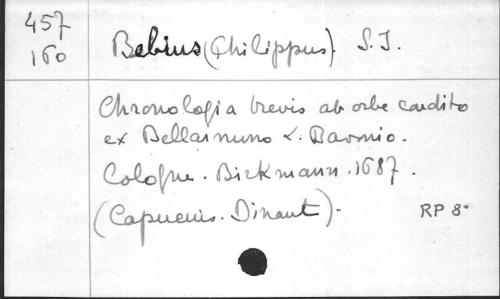 457
160
Bebius (Philippus) S.J.
Chronologia brevis ab orbe condito
ex Bellarmino & Baronio.
Cologne. Birkmann. 1687.
(Capucins. Dinant).
RP 8°